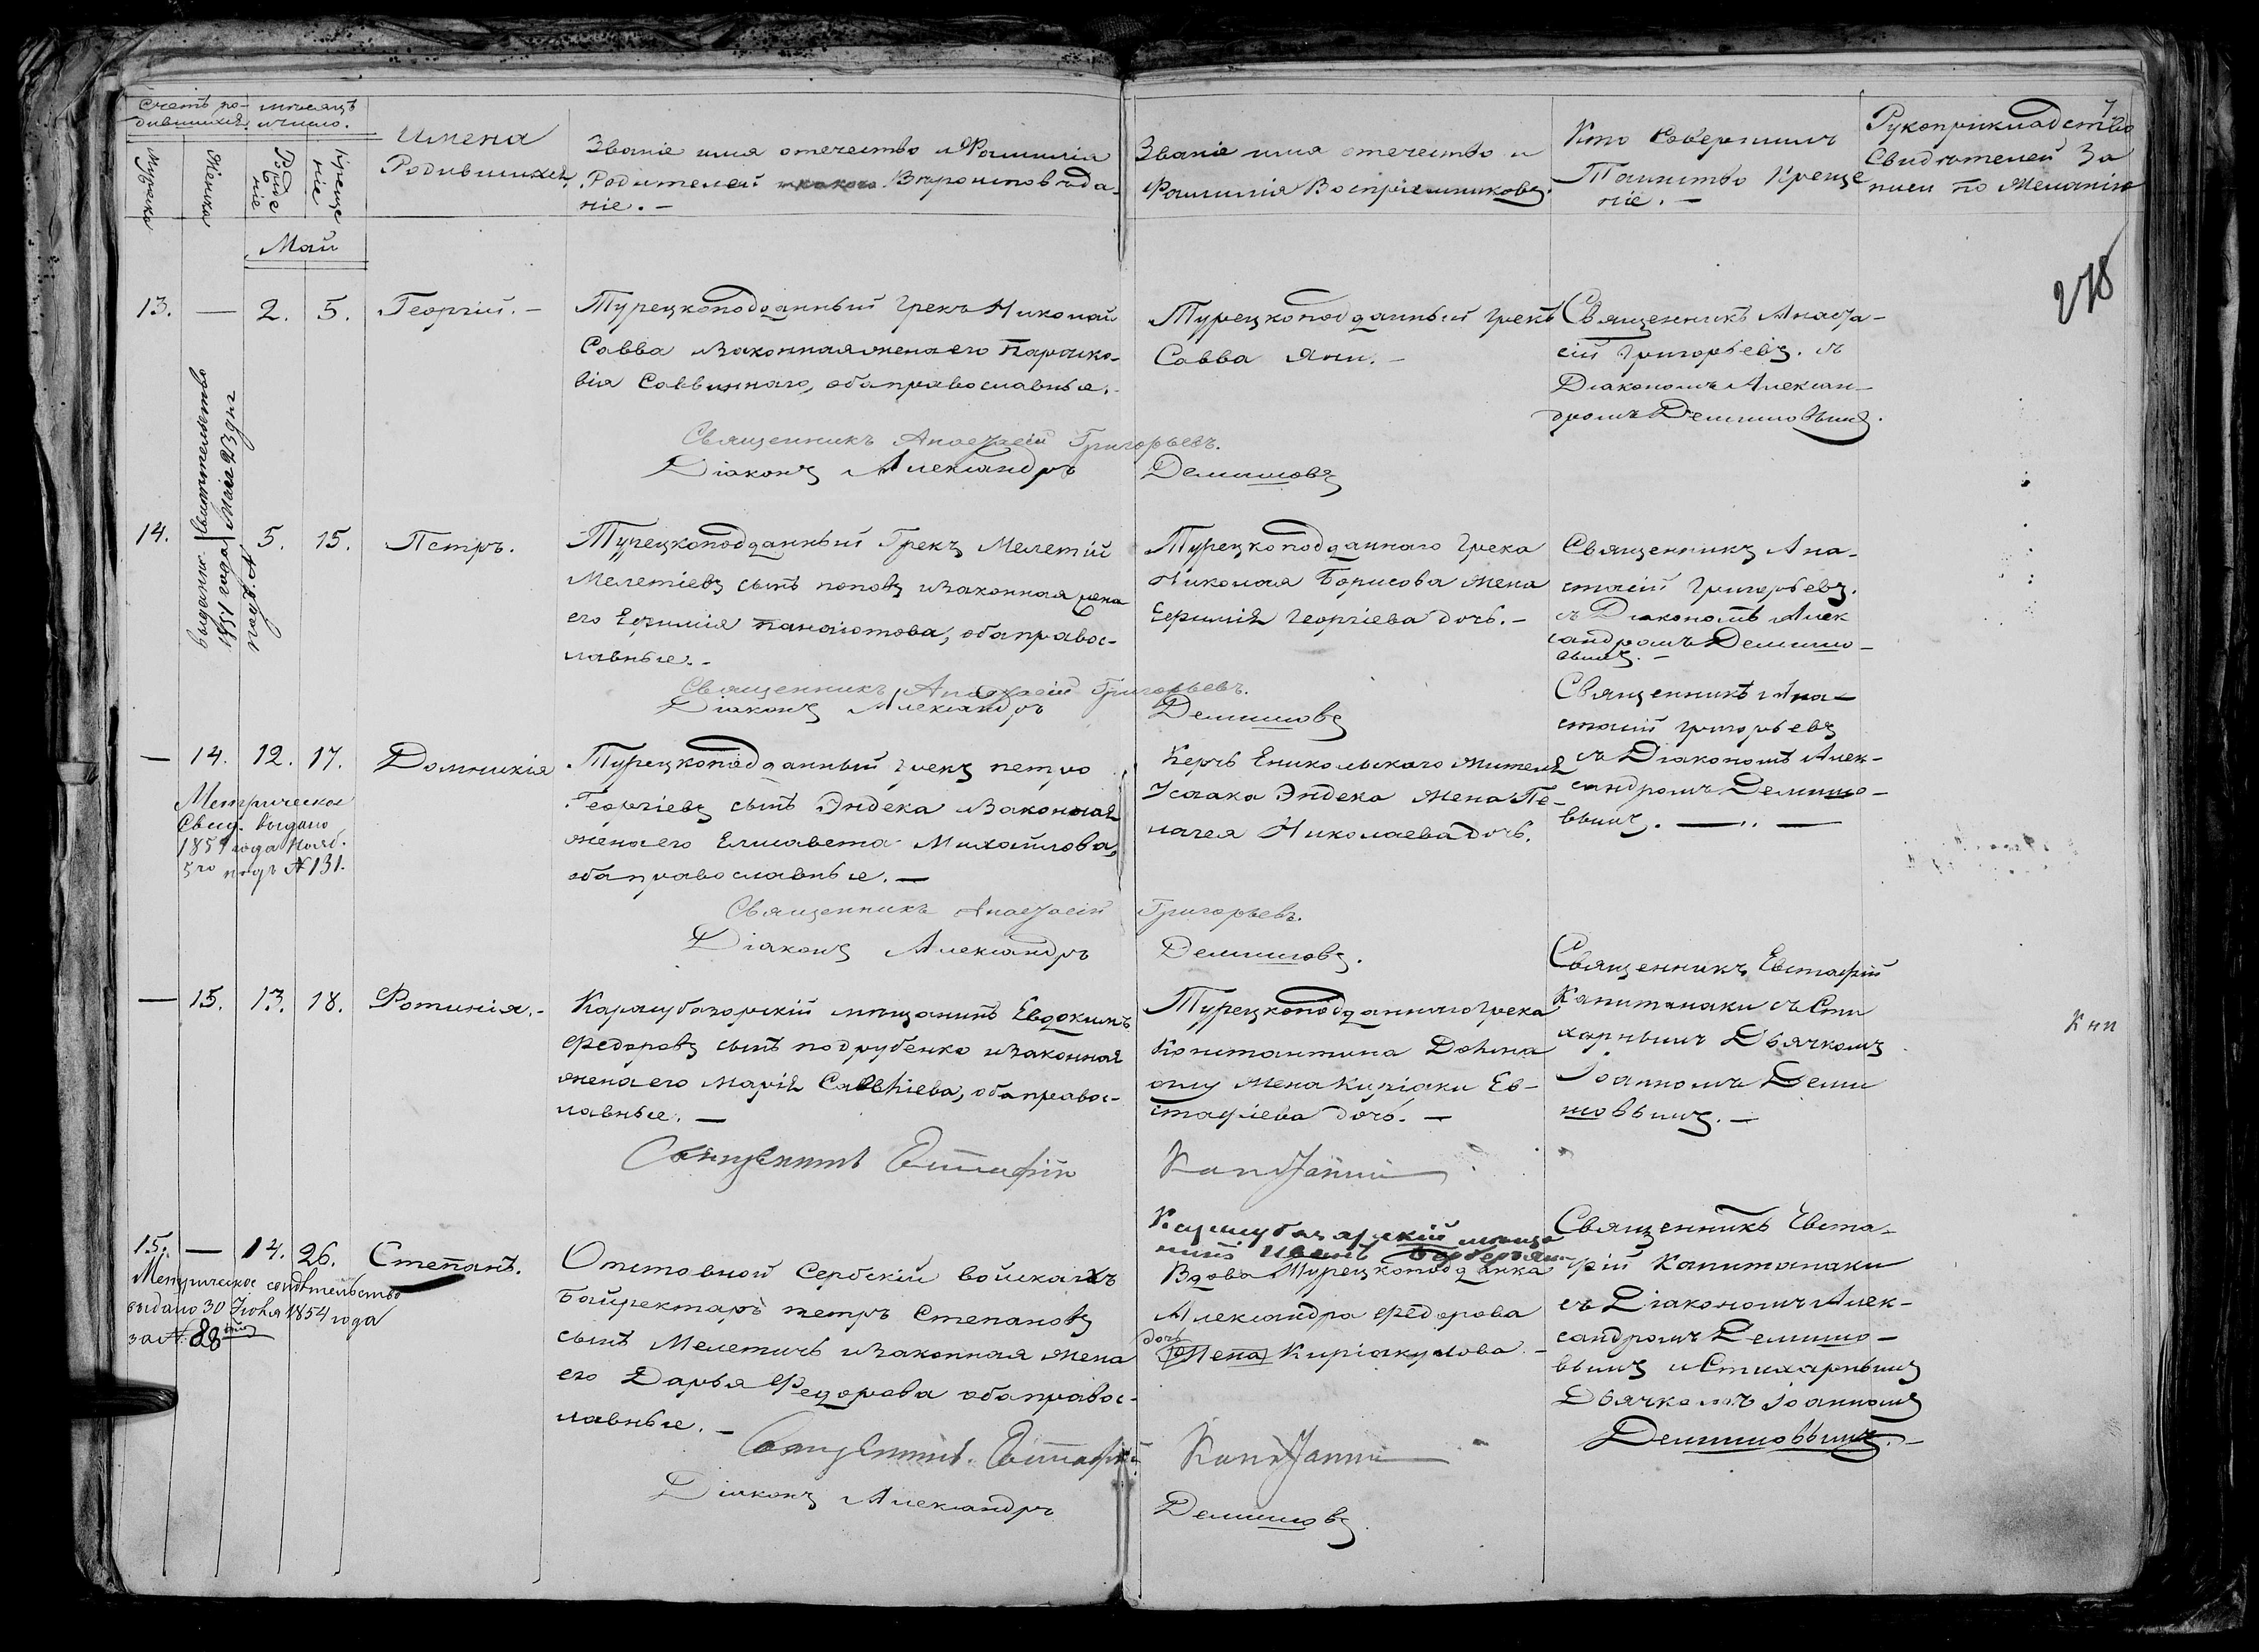 Счетъ ро-
дившихся.
мѣсяцъ
и число.
Мужска
Женска
Рожде
ніе
Креще
ніе
Май
Имена
Родившихся
Званіе имя отечество и Фамилія
Родителей и какого Вѣроисповѣда-
ніе. —
Званіе имя отечество и
Фамилія Воспріемниковъ.
Кто Совершилъ
Таинство Креще
ніе. —
Рукоприкладство
Свидѣтелей За
писи по Желанію
278
13. — 2. 5. Георгій. —
Турецкоподданный Грекъ Николай
Савва и Законная жена его Параско-
вія Саввиннаго, оба православные. -
Турецкоподданный Грекъ
Савва Яни. —
Священникъ Анаста-
сій Григорьевъ. съ
Діакономъ Алексан-
дромъ Демишовымъ.
Священникъ Анастасій Григорьевъ.
Діаконъ Александръ Демишовъ
14. 5. 15. Петръ.
выданно свитительство
1851 года Мая 23 дня
подъ №
Турецкоподданный Грекъ Мелетій
Мелетіевъ сынъ поповъ и Законная жена
его Ефимія Панаіотова, оба правос-
лавные. -
Турецкоподданного Грека
Николая Борисова жена
Ефимія Георгіева дочь. —
Священникъ Ана-
стасій Григорьевъ.
съ Діакономъ Алек
сандромъ Демишо-
вымъ. —
Священникъ Анастасій Григорьевъ.
Діаконъ Александръ Демишовъ
— 14. 12. 17. Домникія
Метрическое
Свид. выдано
1859 года Нояб.
5го подъ № 131.
Турецкоподданный Грекъ петро
Георгіевъ сынъ Эндека и Законная
жена его Елисавета Михайлова,
оба православные. —
Керчь Еникольского жителя
Усаака Эндека жена Пе-
лагея Николаева дочь.
Священникъ Ана-
стасій Григорьевъ
съ Діакономъ Алек-
сандромъ Демишо-
вымъ. —
Священникъ Анастасій Григорьевъ.
Діаконъ Александръ Демишовъ.
— 15. 13. 18. Фотинія. -
Карасубазорскій мѣщанинъ Евдокимъ
Федоровъ сынъ подрубенко и Законная
жена его Марія Савельіева, оба правос-
лавные. —
Турецкоподданного Грека
Константина
оглу жена Киріаки Ев-
стафіева дочь. —
Священникъ Евстафій
Капитанаки съ Сти
харнымъ Дьячкомъ
Іоанномъ Деми
шовымъ. —
Священникъ Евстафій
15. — 14. 26. Степанъ.
Метрическое свидѣтельство
выдано 30 Іюня 1854 года
за № 88
Отставной Сербскій войскахъ
Байректаръ петръ Степановъ
сынъ Мелетичъ и Законная жена
его Дарья Федорова оба правос-
лавные. —
Карасубазарскій мѣща
нинъ Иванъ
Вдова Турецкоподданка
Александра Федорова
дочь
Жена Киріакулова —
Священникъ Евста-
фій Капитанаки
съ Діакономъ Алек-
сандромъ Демишо-
вымъ и Стихарнымъ
Дьячкомъ Іоанномъ
Демишовымъ. —
Священникъ Евстафій
Діаконъ Александръ Демишовъ.